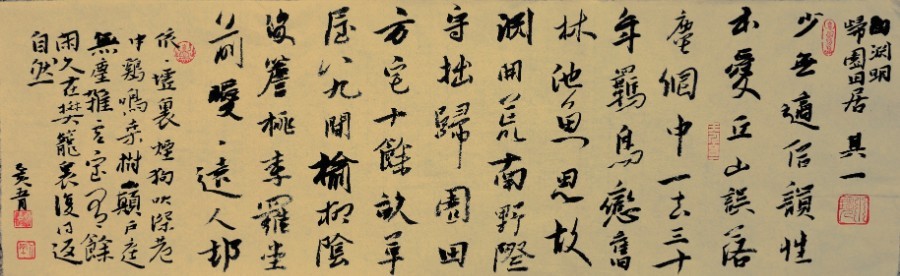 陶渊明
歸園田居 其一
少無適俗韻性
本愛丘山誤落
塵網中一去三十
年羈鳥戀舊
林池魚思故
渊開荒南野際
守拙歸園田
方宅十餘畝草
屋八九間榆柳陰
後簷桃李羅堂
前曖〻遠人邨
依〻墟裏煙狗吠深巷
中鷄鳴桑樹顛户庭
無塵雜虛室有餘
閑久在樊籠裏復得返
自然